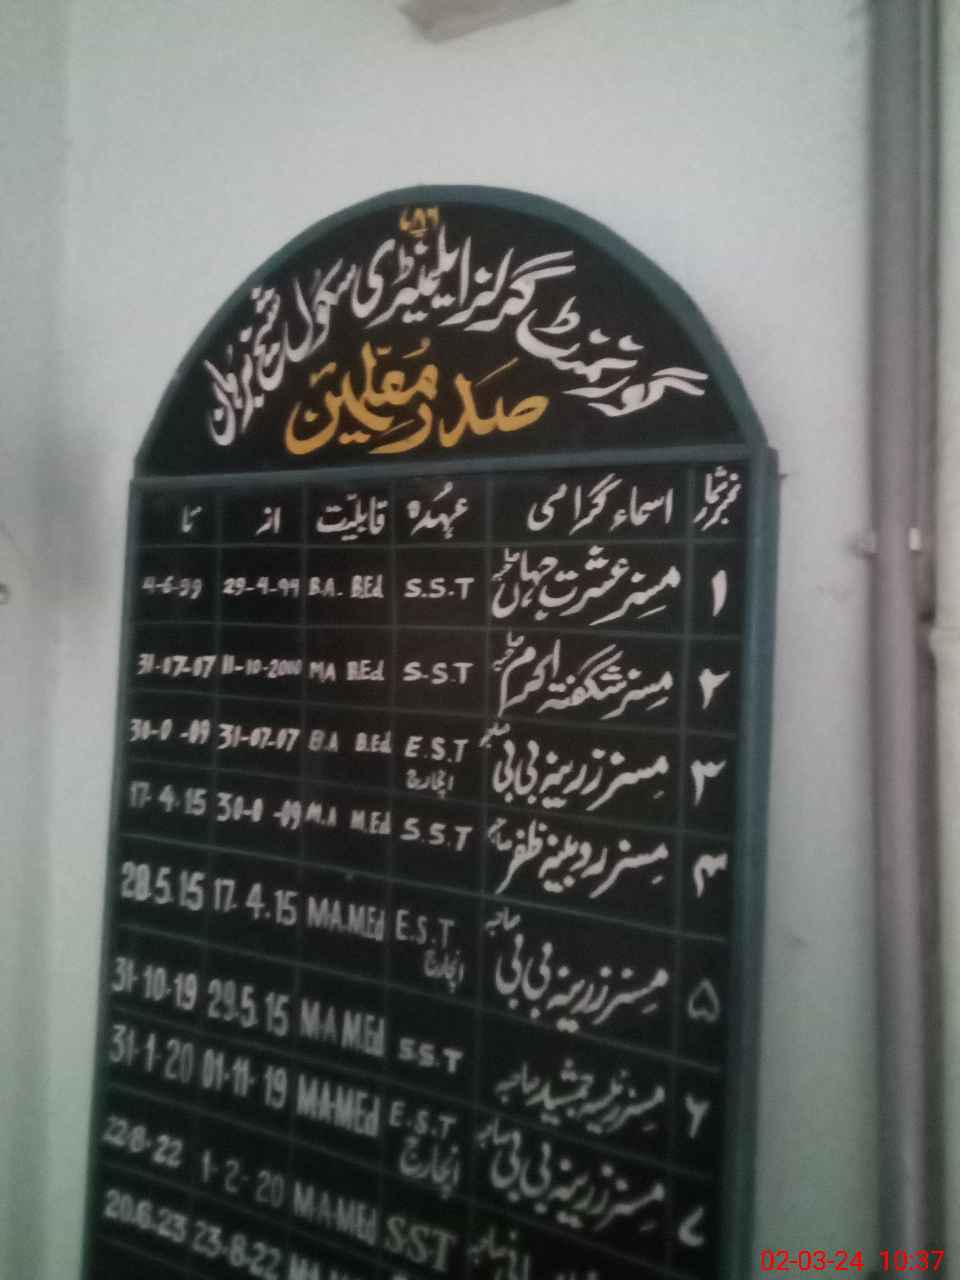 گورنمنٹ گرلز ایلیمنٹری سکول شیخ برہان
صدر معلمین
نمبر شمار اسماء گرامی عہدہ قابلیت از تا
۱ مسز عشرت جہاں S.S.T B.A. B.Ed 29-4-99
۲ مسز شگفتہ اکرم S.S.T MA B.Ed 11-10-2000 31-07-07
۳ مسز زرینہ بی بی صاحبہ E.S.T انچارج B.A B.Ed 31-07-07
۴ مسز روبینہ ظفر صاحبہ S.S.T M.A M.Ed 17.4.15
۵ مسز زرینہ بی بی صاحبہ E.S.T انچارج MA.M.Ed 17.4.15 28.5.15
۶ مسز جمشید صاحبہ S.S.T MA M.Ed 29.5.15 31-10-19
۷ مسز زرینہ بی بی صاحبہ E.S.T انچارج MA.MEd 01-11-19 31-1-20
SST MA.MEd 1-2-20 22-8-22
23-8-22 20.6.23
02-03-24 10:37